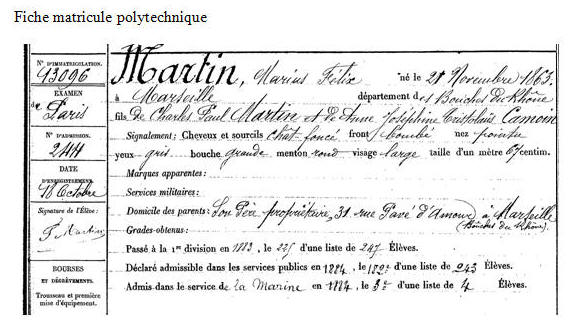 Fiche matricule polytechnique
N° D'IMMATRICULATION.
13096
EXAMEN
de
Paris
N° D'ADMISSION.
244
DATE
D'ENREGISTREMENT.
18 Octobre
Signature de l'Élève :
F. Martin
BOURSES
ET DÉGRÈVEMENTS.
Trousseau et première
mise d'équipement.
Martin, Marius Félix né le 21 Novembre 1863
à Marseille département des Bouches du Rhône
fils de Charles Paul Martin et de Anne Joséphine Camoin
Signalement : Cheveux et sourcils chât. foncé front bombé nez pointu
yeux gris bouche grande menton rond visage large taille d'un mètre 67 centim.
Marques apparentes :
Services militaires :
Domicile des parents : Son Père propriétaire, 31 rue Pavé d'Amour, à Marseille
Grades obtenus : (Bouches du Rhône)
Passé à la 1re division en 1883, le 225e d'une liste de 247 Élèves.
Déclaré admissible dans les services publics en 1884, le d'une liste de 243 Élèves.
Admis dans le service de la Marine en 1884, le 3e d'une liste de 4 Élèves.